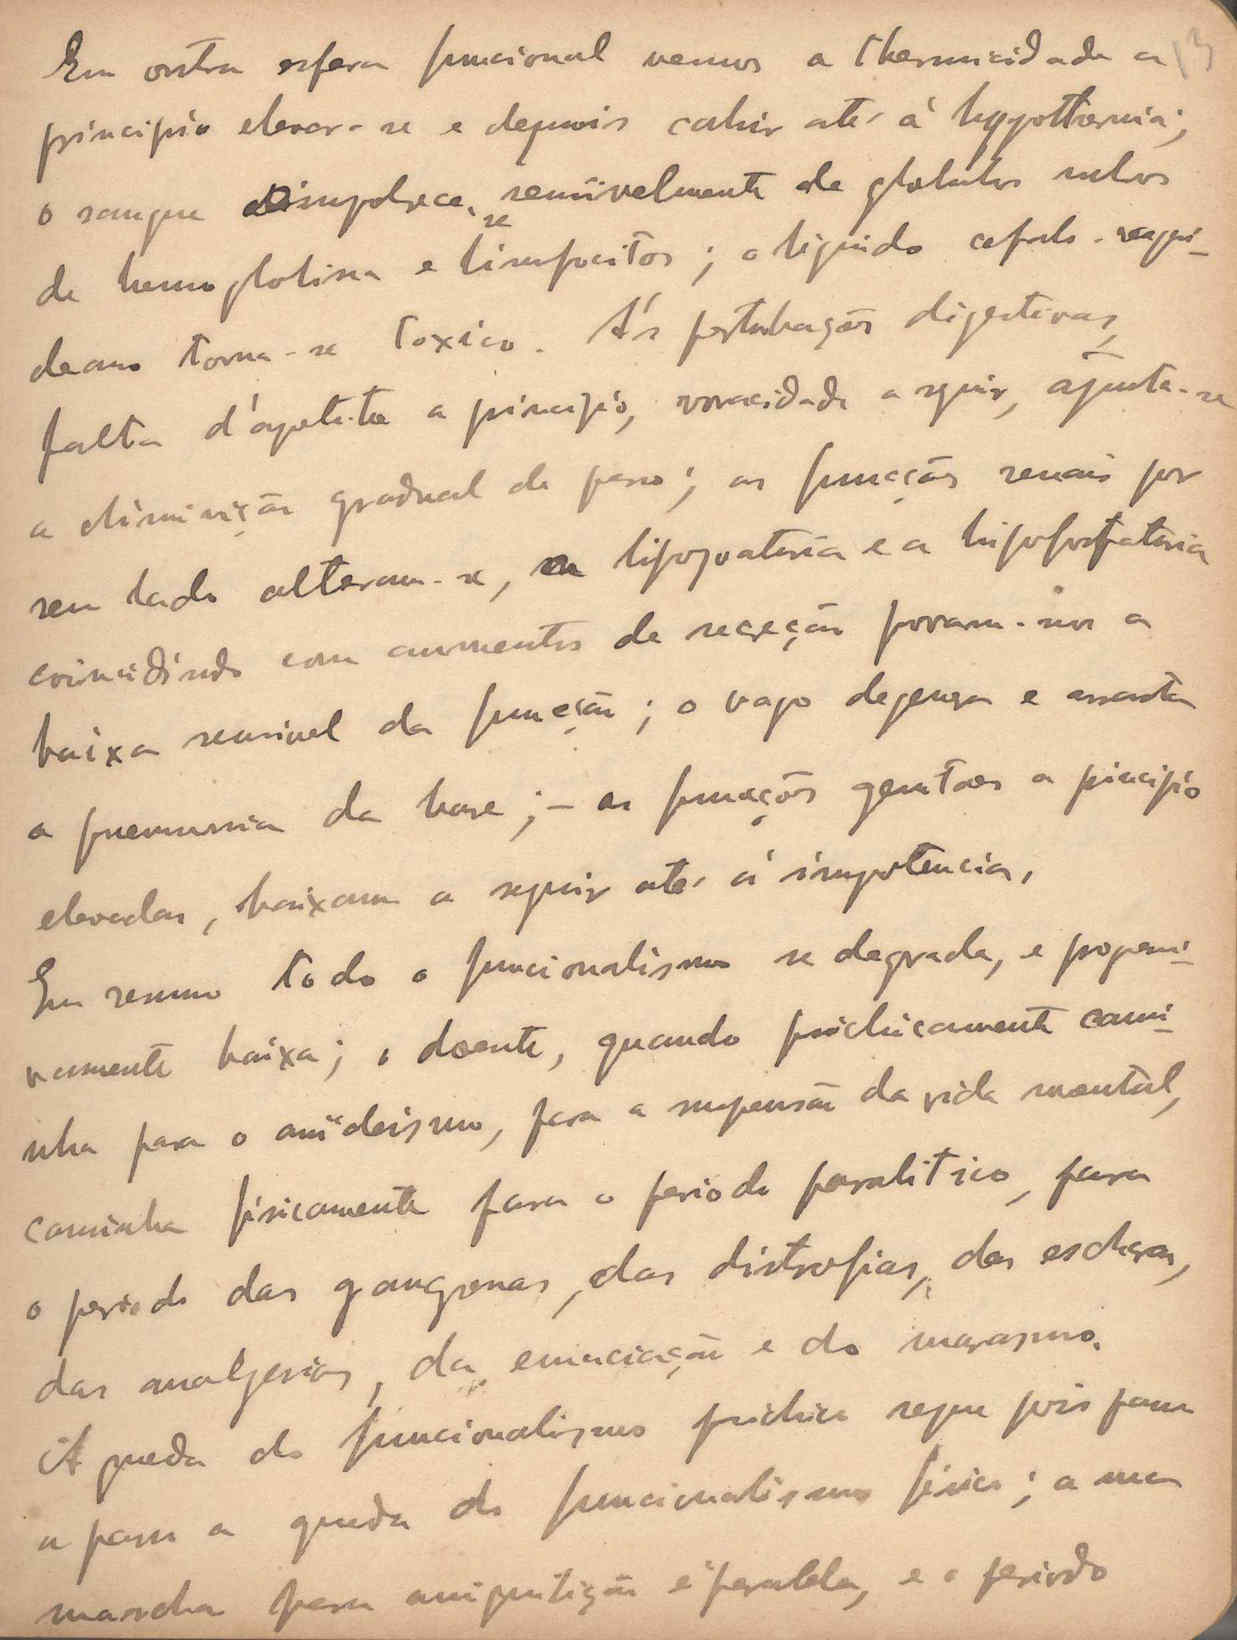 13
Em outra esfera funcional vemos a thermicidade a
principio elevar-se e depois cahir até á hypothermia;
o sangue impobrece-se sensivelmente de globulos rubros
de hemoglobina e limfocitos; o liquido cefalo-raqui-
deano torna-se toxico. Ás perturbações digestivas,
falta d'apetite a principio, voracidade a seguir, ajunta-se
a diminuição gradual de peso; as funcções renais por
seu lado alteram-se, a hipoazoturia e a hipofosfaturia
coincidindo com aumentos de secreção provam-nos a
baixa sensivel da funcção; o vago degenera e
a pneumonia da base; - as funcções genitaes a principio
elevadas, baixam a seguir até á impotencia,
Em resumo todo o funcionalismo se degrada, e progressi-
vamente baixa; o doente, quando psichicamente cami-
nha para o anideismo, para a suspensão da vida mental,
caminha fisicamente para o periodo paralitico, para
o periodo das gangrenas, das distrofias, das escharas,
das analgesias, da emaciação e do marasmo.
A queda do funcionalismo psichico segue pois passo
a passo a queda do funcionalismo fisico; a sua
marcha para aniquilição é paralela, e o periodo